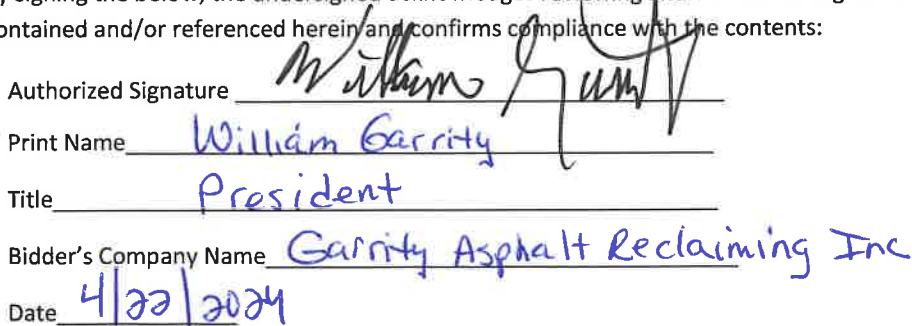 contained and/or referenced herein and confirms compliance with the contents:
Authorized Signature William Garrity
Print Name William Garrity
Title President
Bidder's Company Name Garrity Asphalt Reclaiming Inc
Date 4/22/2024